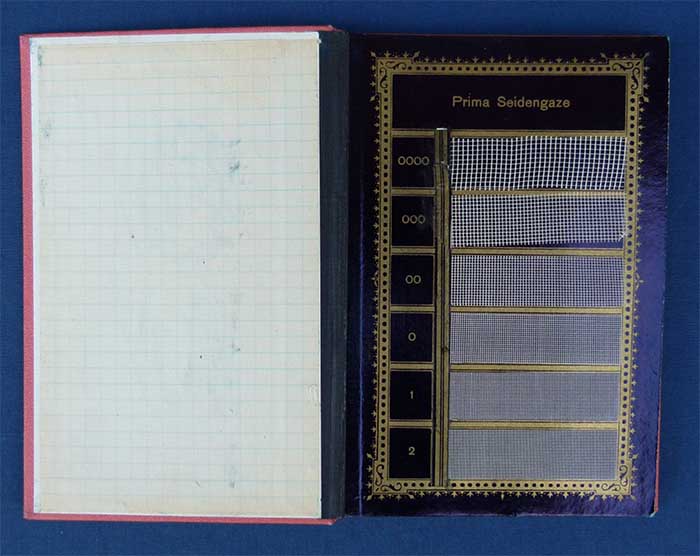 Prima Seidengaze
0000
000
00
0
1
2